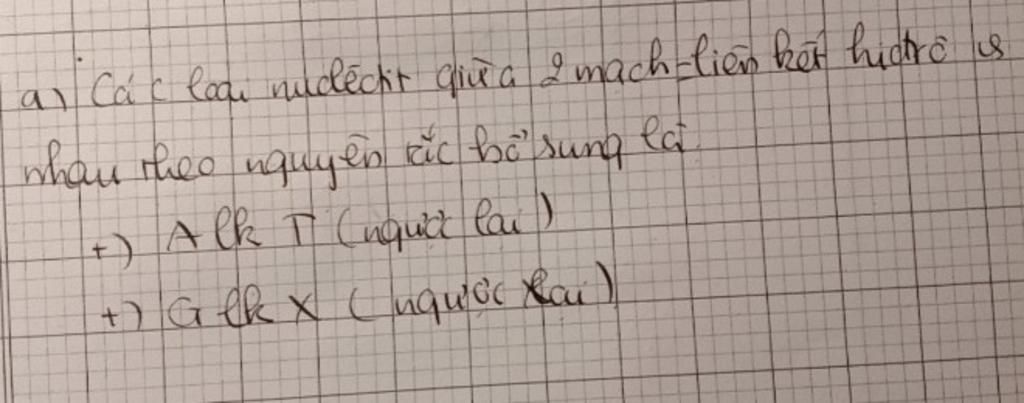 a) Các loại nuclêôtit giữa 2 mạch liên kết hiđrô vs
nhau theo nguyên tắc bổ sung là
+) A lk T (ngược lại)
+) G lk X (ngược lại)